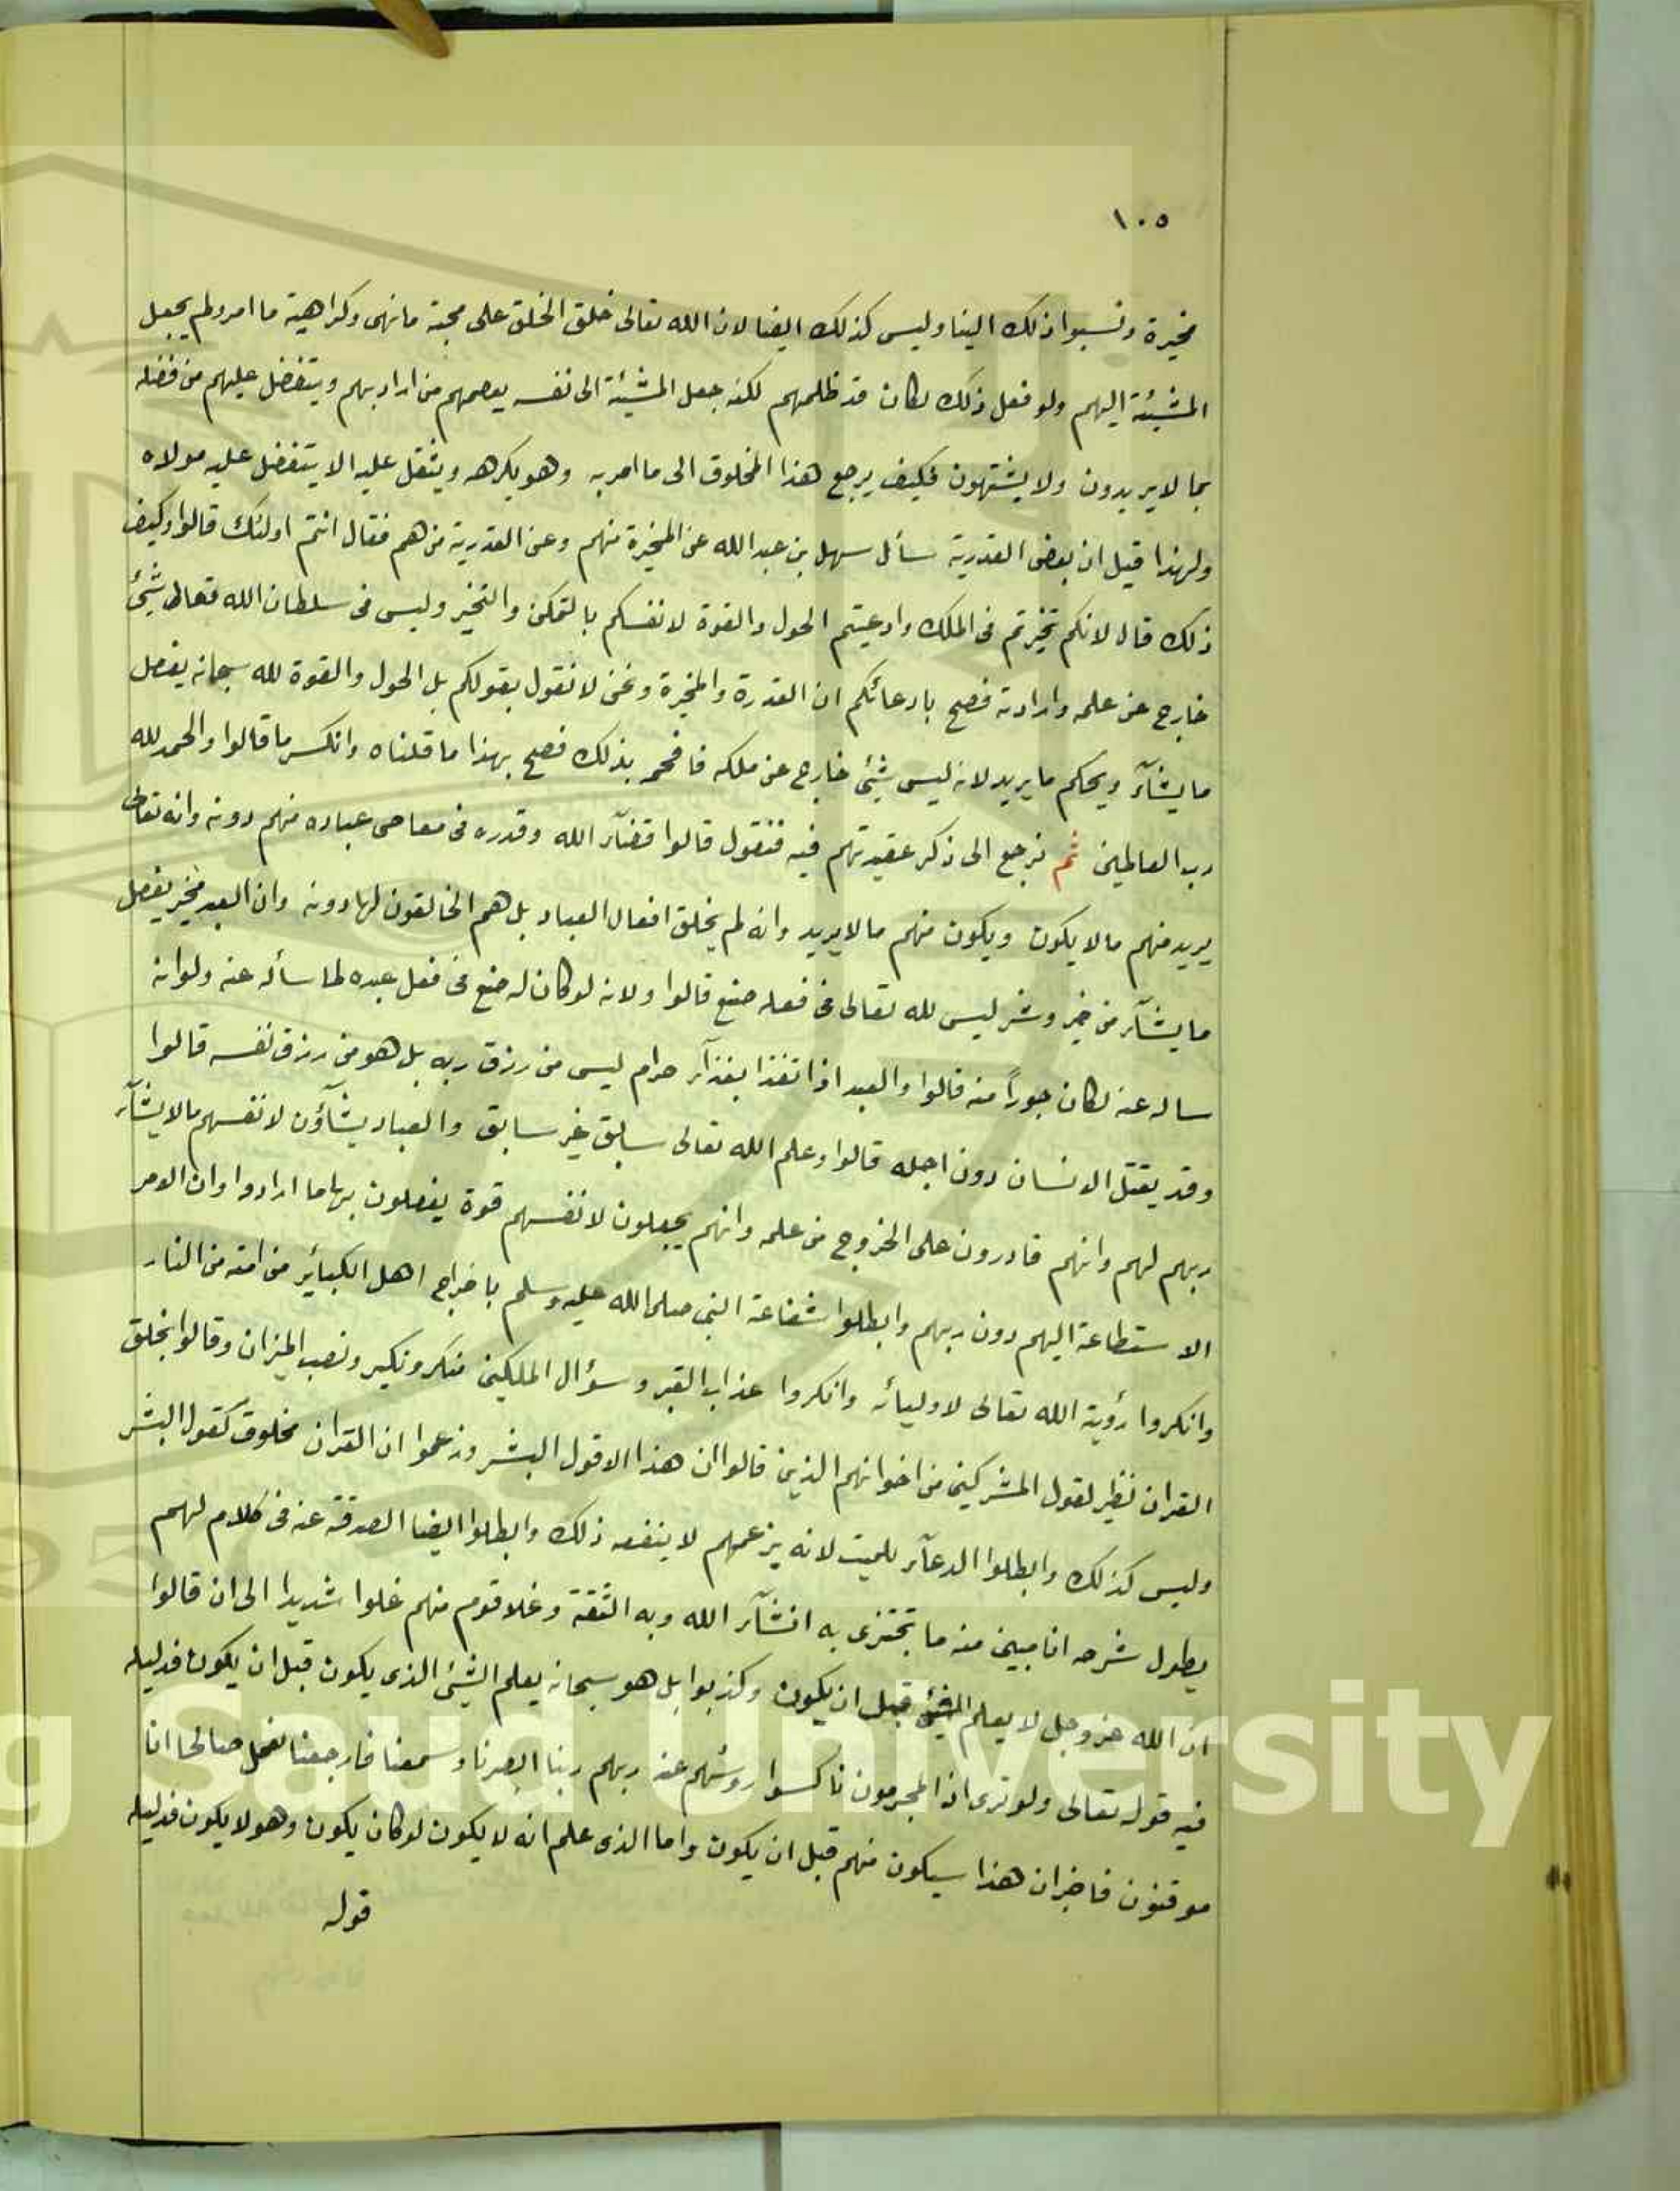 ١٠٥
مخيرة ونسبوا ذلك الينا وليس كذلك ايضا لان الله تعالى خلق الخلق على محبة ما نهى وكراهية ما امر ولم يجعل
المشيئة اليهم ولو فعل ذلك لكان قد ظلمهم لكنه جعل المشيئة الى نفسه يعصمهم من اراد بهم ويتفضل عليهم من فضله
بما لا يريدون ولا يشتهون فكيف يرجع هذا المخلوق الى ما امر به وهو يكرهه ويثقل عليه الا يتفضل عليه مولاه
ولهذا قيل ان بعض القدرية سأل سهل بن عبد الله عن المخيرة منهم وعن القدرية من هم فقال انتم اولئك قالوا وكيف
ذلك قال لانكم تخيرتم فى الملك وادعيتم الحول والقوة لانفسكم بالتمكن والتخير وليس فى سلطان الله تعالى شيئ
خارج عن علمه وارادته فصح بادعائكم ان القدرة والمخيرة ونحن لا نقول بقولكم بل الحول والقوة لله سبحانه يفعل
ما يشآء ويحكم ما يريد لانه ليس شيئ خارج عن ملكه فافحم بذلك فصح بهذا ما قلناه وانكسر ما قالوا والحمد لله
رب العالمين ثم نرجع الى ذكر عقيدتهم فيه فنقول قالوا قضآء الله وقدره فى معاصى عباده منهم دونه وانه تعالى
يريد منهم ما لا يكون ويكون منهم ما لا يريد وانه لم يخلق افعال العباد بل هم الخالقون لها دونه وان العبد مخير يفعل
ما يشآء من خير وشر ليس لله تعالى فى فعله صنع قالوا ولانه لو كان له صنع فى فعل عبده لما سأله عنه ولو انه
ساله عنه لكان جوراً منه قالوا والعبد اذا تغذا بغذآء حرام ليس من رزق ربه بل هو من رزق نفسه قالوا
وقد يقتل الانسان دون اجله قالوا وعلم الله تعالى سابق غير سابق والعباد يشآؤن لانفسهم ما لا يشآء
ربهم لهم وانهم قادرون على الخروج من علمه وانهم يجعلون لانفسهم قوة يفعلون بها ما ارادوا وان الامر
الاستطاعة اليهم دون ربهم وابطلوا شفاعة النبى صلى الله عليه وسلم باخراج اهل الكبآئر من امته من النار
وانكروا رؤية الله تعالى لاوليائه وانكروا عذاب القبر وسؤال الملكين منكر ونكير ونصب الميزان وقالوا بخلق
القران نظير لقول المشركين من اخوانهم الذين قالوا ان هذا الا قول البشر وزعموا ان القران مخلوق كقول البشر
وليس كذلك وابطلوا الدعآء للميت لانه بزعمهم لا ينفعه ذلك وابطلوا ايضا الصدقة عنه فى كلام لهم
يطول شرحه انا مبين منه ما تجتزى به انشآء الله وبه الثقة وغلا قوم منهم غلوا شديدا الى ان قالوا
ان الله عز وجل لا يعلم الشيئ قبل ان يكون وكذبوا بل هو سبحانه يعلم الشيئ الذى يكون قبل ان يكون فدليله
فيه قوله تعالى ولو ترى اذ المجرمون ناكسوا روسهم عند ربهم ربنا ابصرنا وسمعنا فارجعنا نعمل صالحا انا
موقنون فاخبر ان هذا سيكون منهم قبل ان يكون واما الذى علم انه لا يكون لو كان يكون وهو لا يكون فدليله
قوله